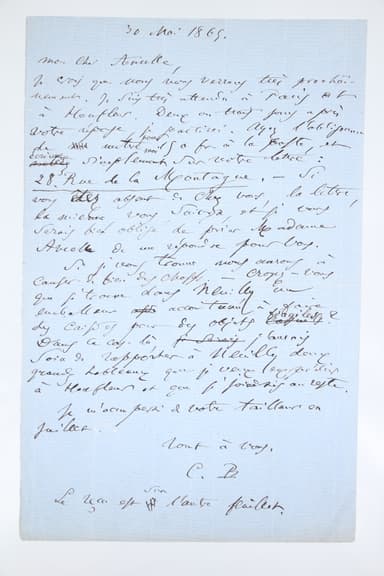 30 Mai 1865.
mon cher Ancelle,
Je crois que nous nous verrons très prochai-
nement. Je suis très attendu à Paris et
à Honfleur. Deux ou trois jours après
votre réponse, je partirai. Ayez l'obligeance
de mettre pour moi à la poste, et
écrivez simplement sur votre lettre :
28, Rue de la Montagne. – Si
vous absent de chez vous, la lettre,
la mienne vous suivra, et je vous
serais bien obligé de prier Madame
Ancelle de me répondre pour vous.
Si je vous trouve, nous aurons à
causer de bien des choses. – Croyez-vous
que je trouve dans Neuilly un
emballeur accoutumé à faire
des caisses pour des objets fragiles ?
Dans ce cas-là j'aurais
soin de rapporter à Neuilly deux
grands tableaux que je veux
à Honfleur et que je
Je m'occuperai de votre tailleur en
juillet.
Tout à vous.
C. B.
Le reçu est sur l'autre feuillet.